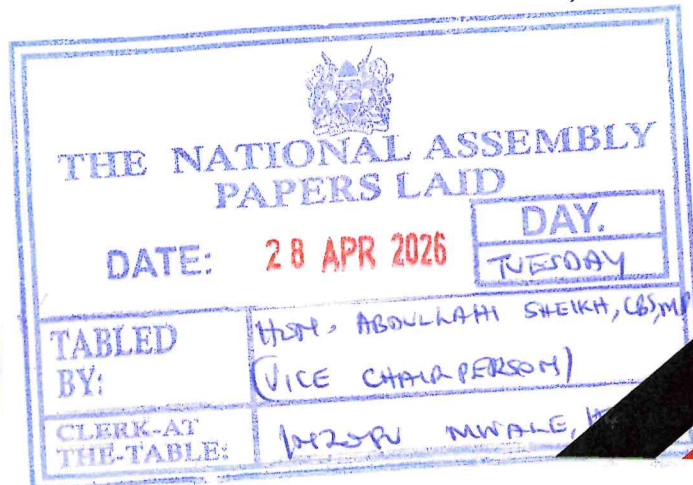 THE NATIONAL ASSEMBLY
PAPERS LAID
DATE: 28 APR 2026
DAY.
TUESDAY
TABLED BY:
HON. ABDULLAHI SHEIKH, CBS, M
(VICE CHAIRPERSON)
CLERK-AT THE-TABLE:
MWALE,